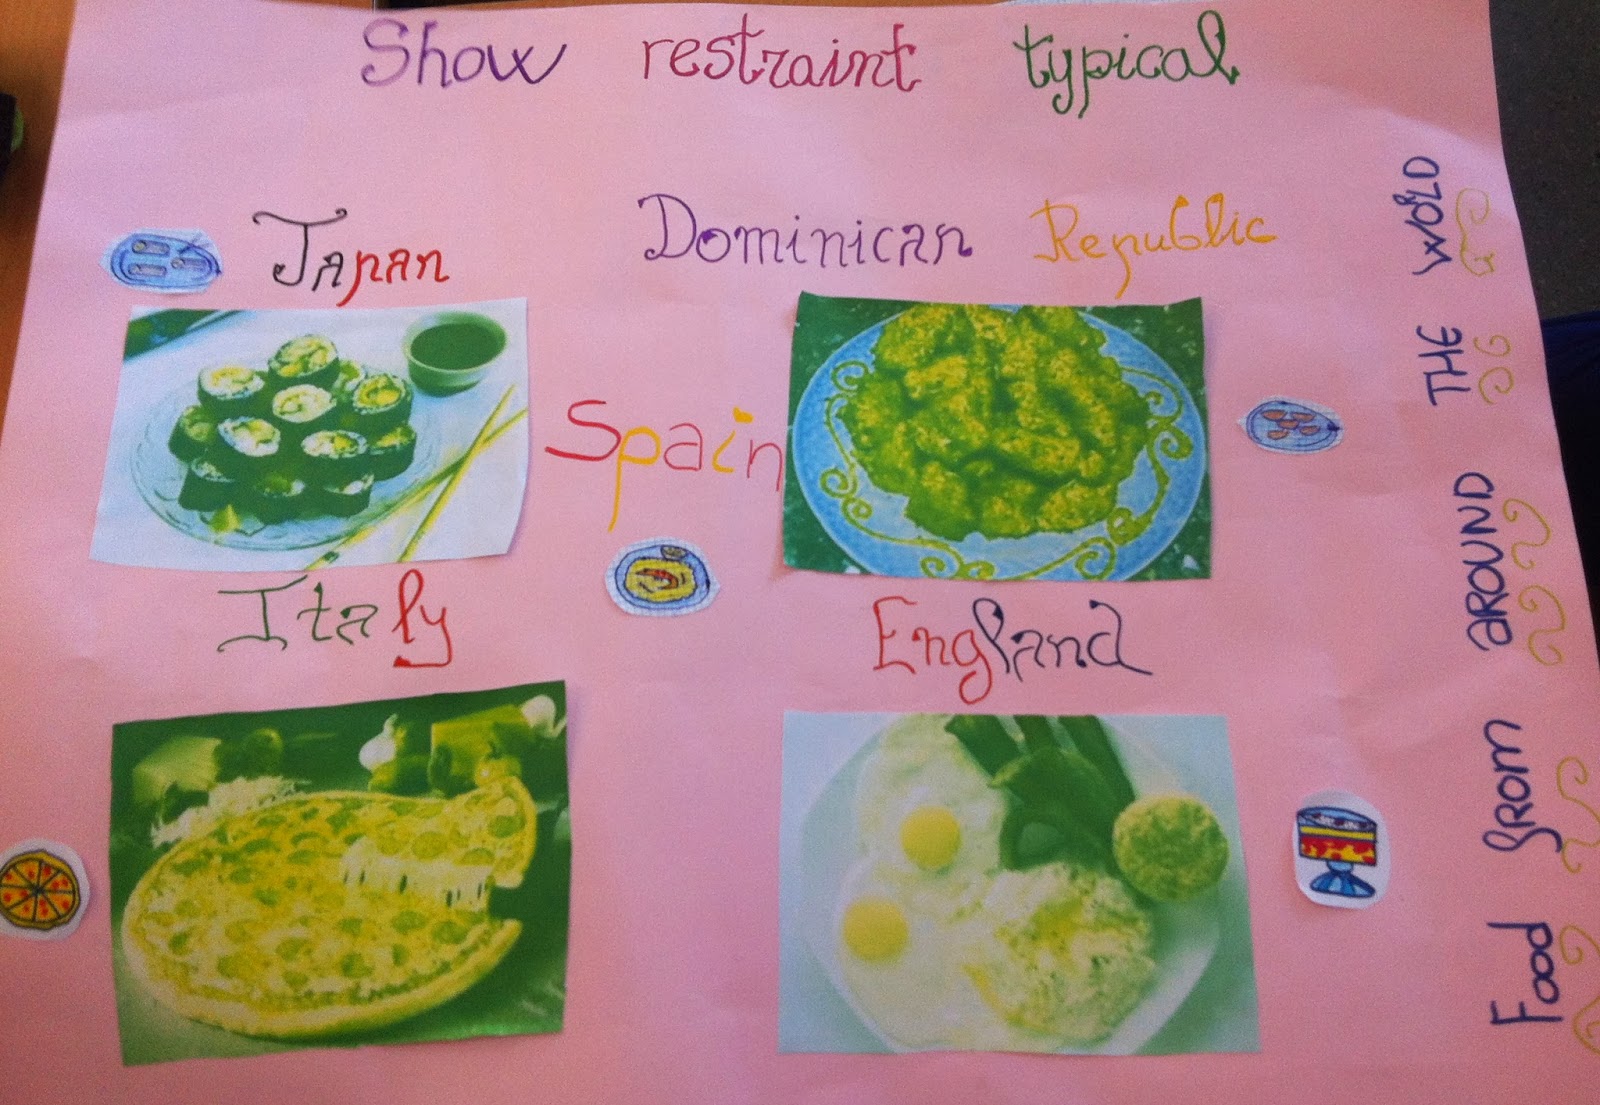 Show restraint typical
Japan
Dominican Republic
Spain
Italy
England
Food from AROUND THE WORLD